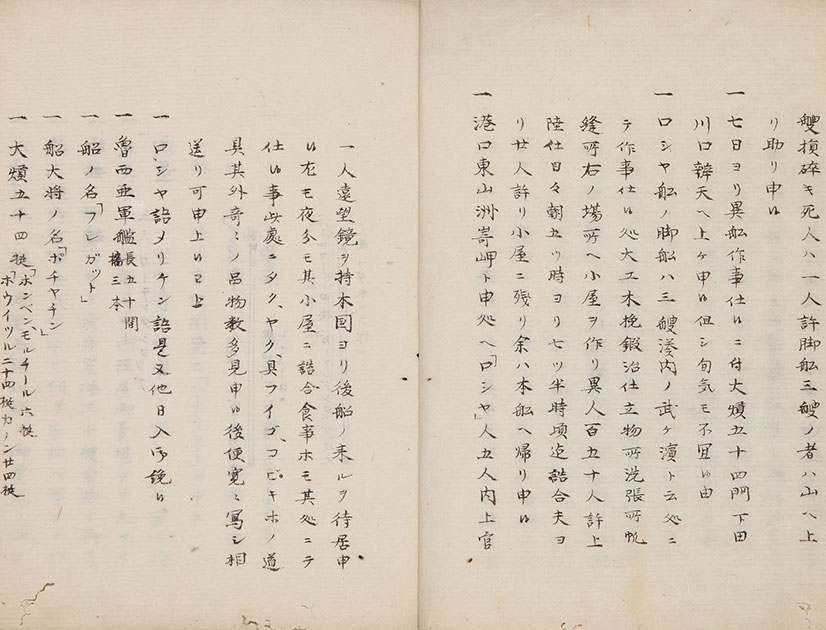 艘損碎キ死人ハ一人許脚船三艘ノ者ハ山ヘ上
リ助リ申候
一 七日ヨリ異船作事仕候ニ付大熕五十四門下田
川口辨天ヘ上ケ申候但シ旬気モ不宜候由
一 ロシヤ船ノ脚船ハ三艘湊内ノ武ケ濱ト云処ニ
テ作事仕候処大工木挽鍛冶仕立物所洗張所帆
縫所右ノ場所ヘ小屋ヲ作リ異人百五十人許上
陸仕日々朝五ツ時ヨリ七ツ半時頃迄詰合夫ヨ
リ廿人許リ小屋ニ残リ余ハ本船ヘ帰リ申候
一 港口東山洲嵜岬ト申処ヘ「ロシヤ」人五人内上官
一人遠望鏡ヲ持本国ヨリ後船ノ来ルヲ待居申
候尤モ夜分モ其小屋ニ詰合食事ホモ其処ニテ
仕候事此處ニタク、ヤク、具フイゴ、コビキホノ道
具其外奇ミノ品物数多見申候後便寛ミ寫シ相
送リ可申上候已上
一 ロシヤ語メリケン語是又他日入御鏡候
一 魯西亜軍艦長五十間檣三本
一 船ノ名「フレガット」
一 船大将ノ名「ポチヤチン」
一 大熕五十四挺「ボンベン、モルチール六挺
「ホウイツル二十四挺カノン廿四挺